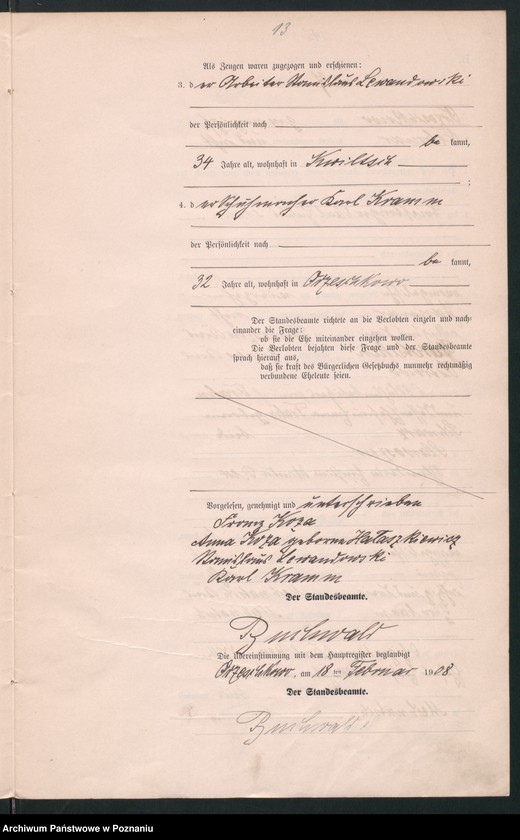 13
Als Zeugen waren zugezogen und erschienen:
3. der Arbeiter Stanislaus Lewandowski
der Persönlichkeit nach
be kannt,
34 Jahre alt, wohnhaft in Kwiltsch
;
4. der Schuhmacher Karl Kramm
der Persönlichkeit nach
be kannt,
32 Jahre alt, wohnhaft in Orzeschkowo
Der Standesbeamte richtete an die Verlobten einzeln und nach-
einander die Frage:
ob sie die Ehe miteinander eingehen wollen.
Die Verlobten bejahten diese Frage und der Standesbeamte
sprach hierauf aus,
daß sie kraft des Bürgerlichen Gesetzbuchs nunmehr rechtmäßig
verbundene Eheleute seien.
Vorgelesen, genehmigt und unterschrieben
Franz Koza
Anna Koza geborene Hałaszkiewicz
Stanislaus Lewandowski
Karl Kramm
Der Standesbeamte.
Buchwald
Die Übereinstimmung mit dem Hauptregister beglaubigt
Orzeschkowo, am 18 ten Februar 1908
Der Standesbeamte.
Buchwald.
Archiwum Państwowe w Poznaniu